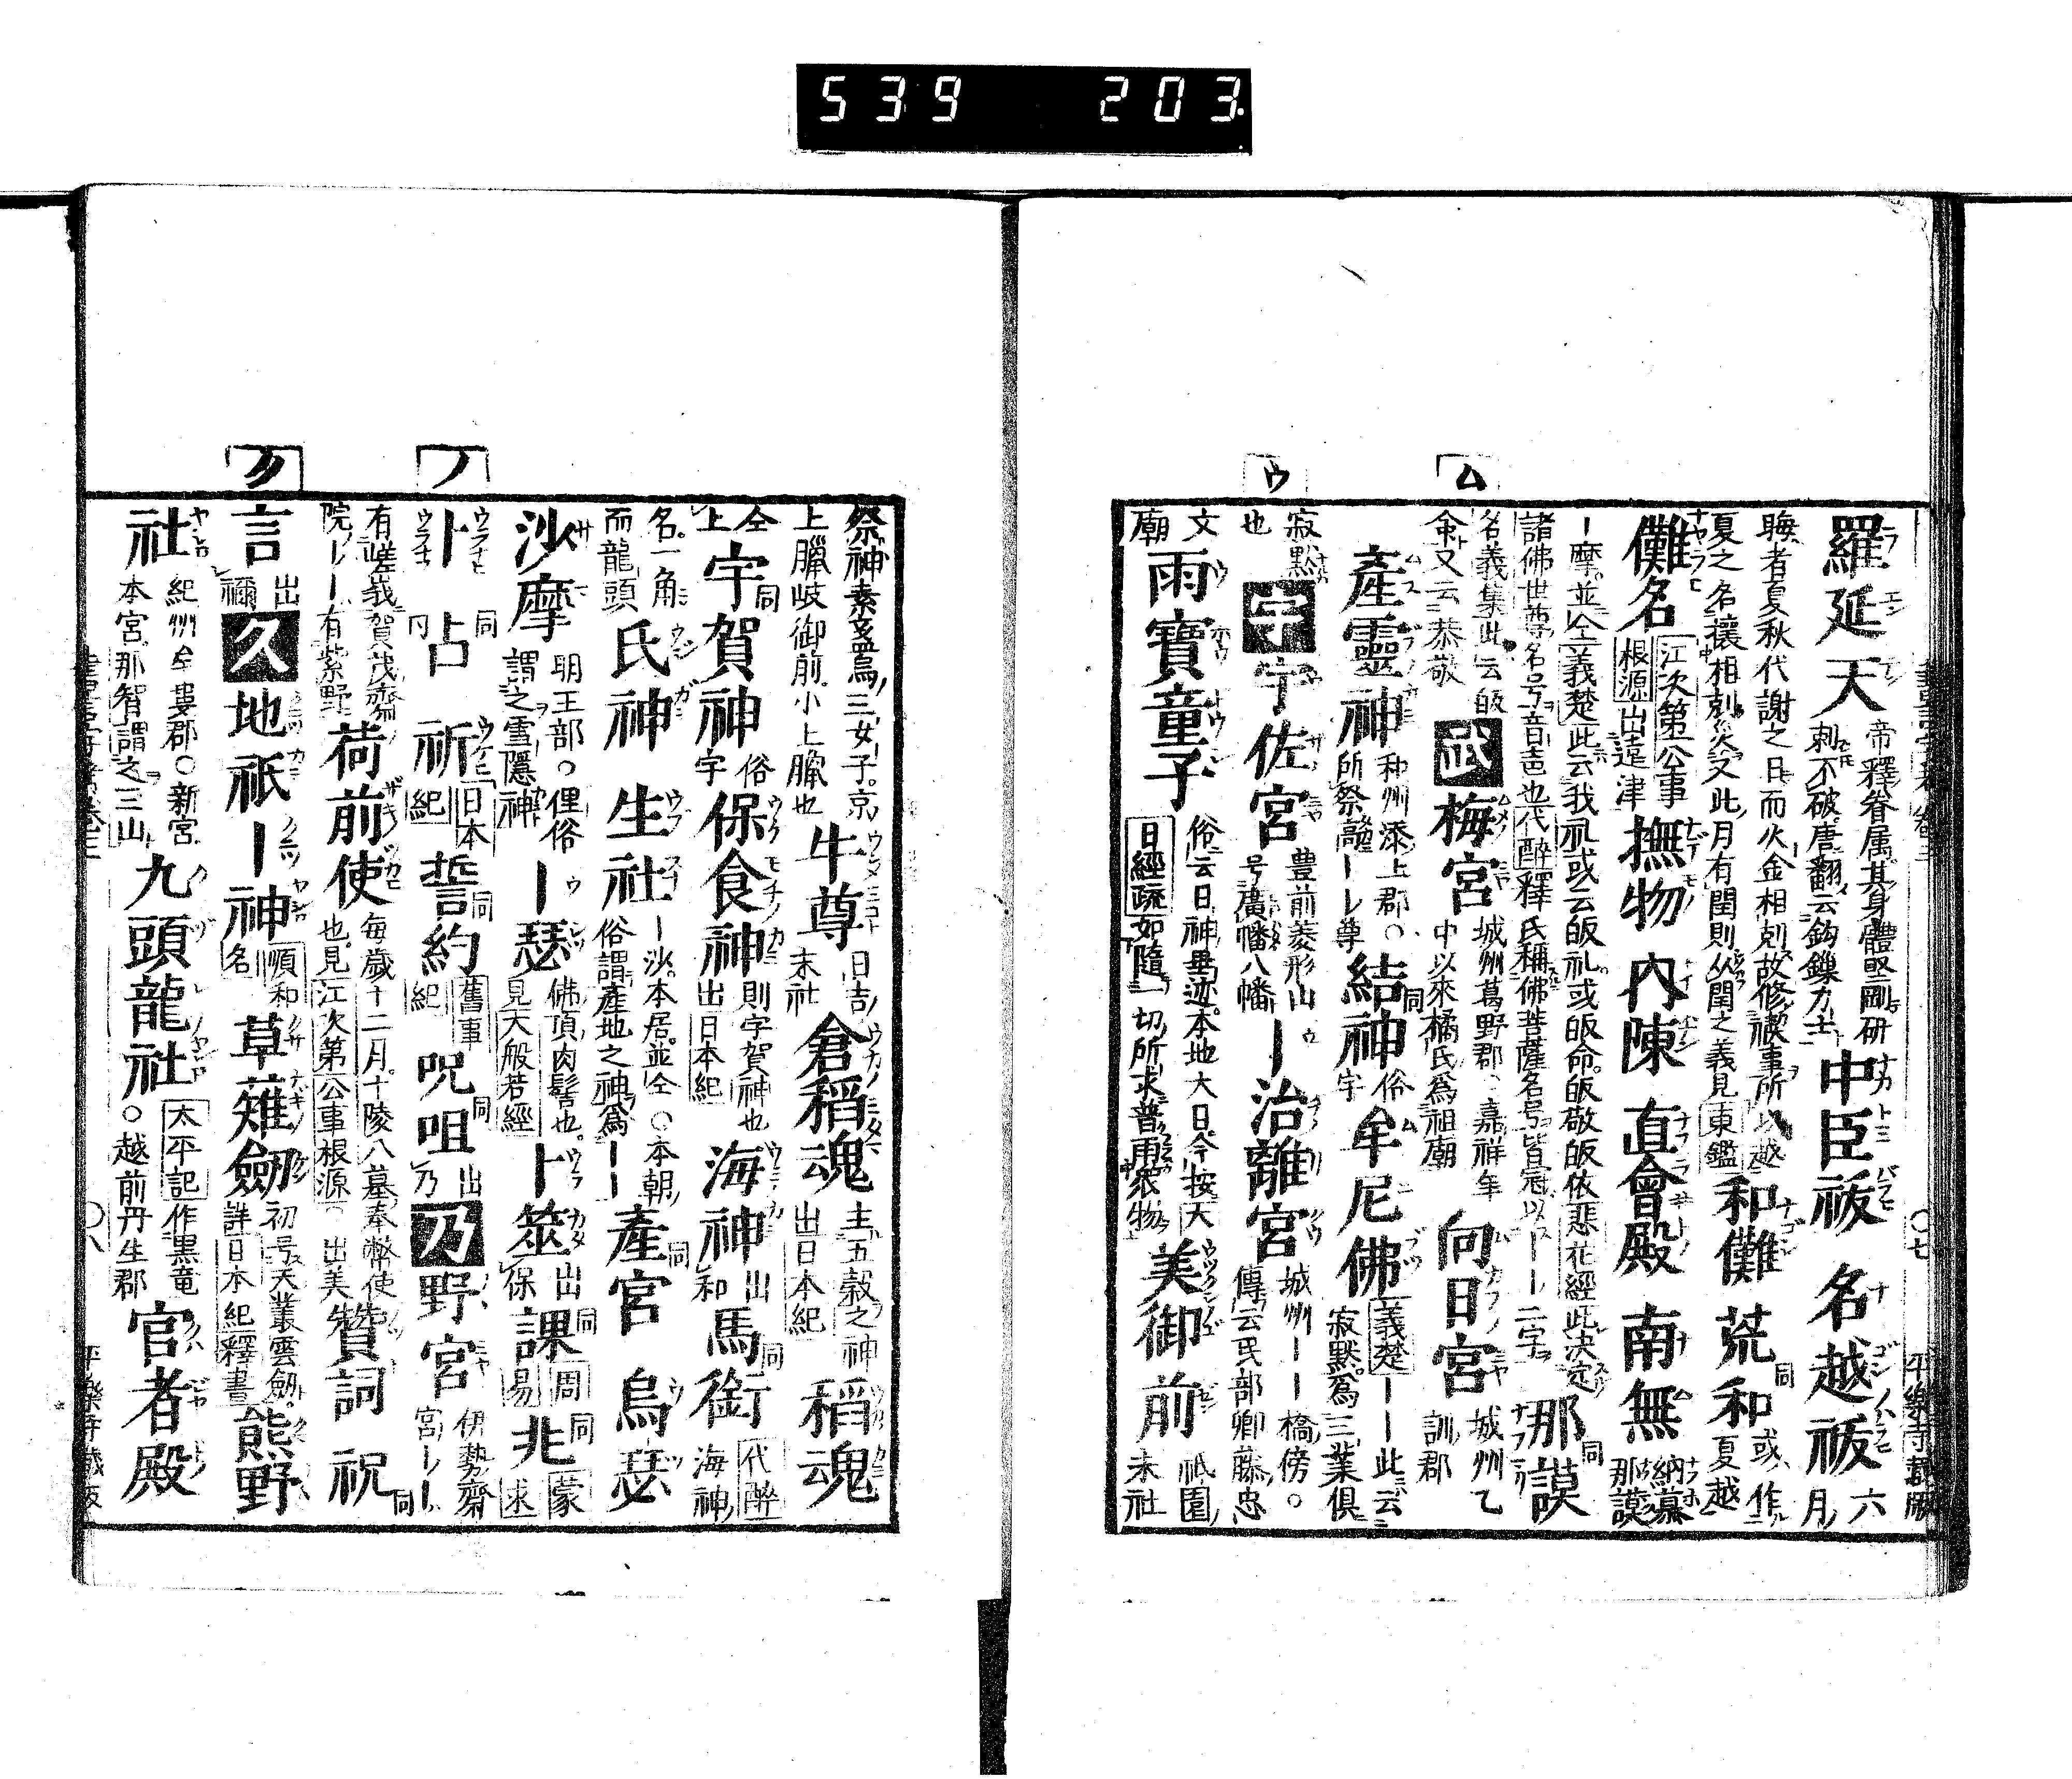 539 203
羅延天 帝釋眷属其身體堅剛研
刺不破唐翻云鈎鏁力士 中臣祓 名越祓 六
月
晦者夏秋代謝之日而火金相剋故修禊事所以越
夏之名攘相剋災又此月有閏則以閏之義見東鑑 和儺 荒和 同 或作
夏越
儺名 江次第公事
根源出遠津 撫物 內陳 直會殿 南無 納慕
那謨
ー摩並仝義楚此云我礼或云皈礼或皈命皈敬皈依悲花經此決定
諸佛世尊名号音声也代醉釋氏稱佛菩薩名号皆冠以ーー二字 那謨 同
名義集此云皈
命又云恭敬 武 梅宮 城州葛野郡嘉祥年
中以來橘氏爲祖廟 向日宮 城州乙
訓郡
產靈神 和州添上郡○
所祭高ーレ尊 結神 同 俗
字 牟尼佛 義楚ーー此云
寂默爲三業俱
寂默
也 宇 宇佐宮 豊前菱形山
号廣幡八幡 ー治離宮 城州ーー橋傍○
傳云民部卿藤忠
文
廟 雨寶童子 俗云日神垂迹本地大日今按大
日經疏如隨一切所求普雨衆物 美御前 祇園
末社
ム
ウ
祭神素盞烏三女子京
上臈岐御前小上臈也 牛尊 日吉
末社 倉稻魂 主五穀之神
出日本紀 稻魂
仝
上 宇賀神 同 俗
字 保食神 則宇賀神也
出日本紀 海神 出
和 馬銜 同 代醉
海神
名一角
而龍頭 氏神 生社 ー沙本居並仝○本朝
俗謂產地之神爲ーー 產宮 同 烏瑟
沙摩 明王部○俚俗
謂之雪隱神 ー瑟 佛頂肉髻也
見大般若經 卜筮 出
保 課 同 周
易 兆 同 蒙
求
卜 占 同 祈 日本
紀 誓約 同 舊事
紀 呪咀 同 出
乃 乃 野宮 伊勢齋
宮ーー
有嵯峩賀茂齋
院ーー有紫野 荷前使 每歲十二月十陵八墓奉幣使
也見江次第公事根源 出美 賛詞 祝 同
言 出
禰 久 地祇 ー神 順和
名 草薙劔 初号天叢雲劔
詳日本紀釋書 熊野
社 紀州牟婁郡○新宮
本宮那智謂之三山 九頭龍社 太平記作黒竜
○越前丹生郡 官者殿
ノ
ク